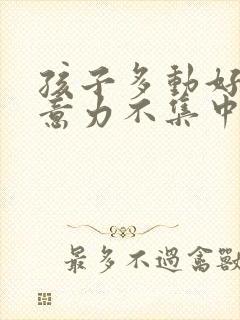 孩子多動好
意力不集中
最多不過禽獸